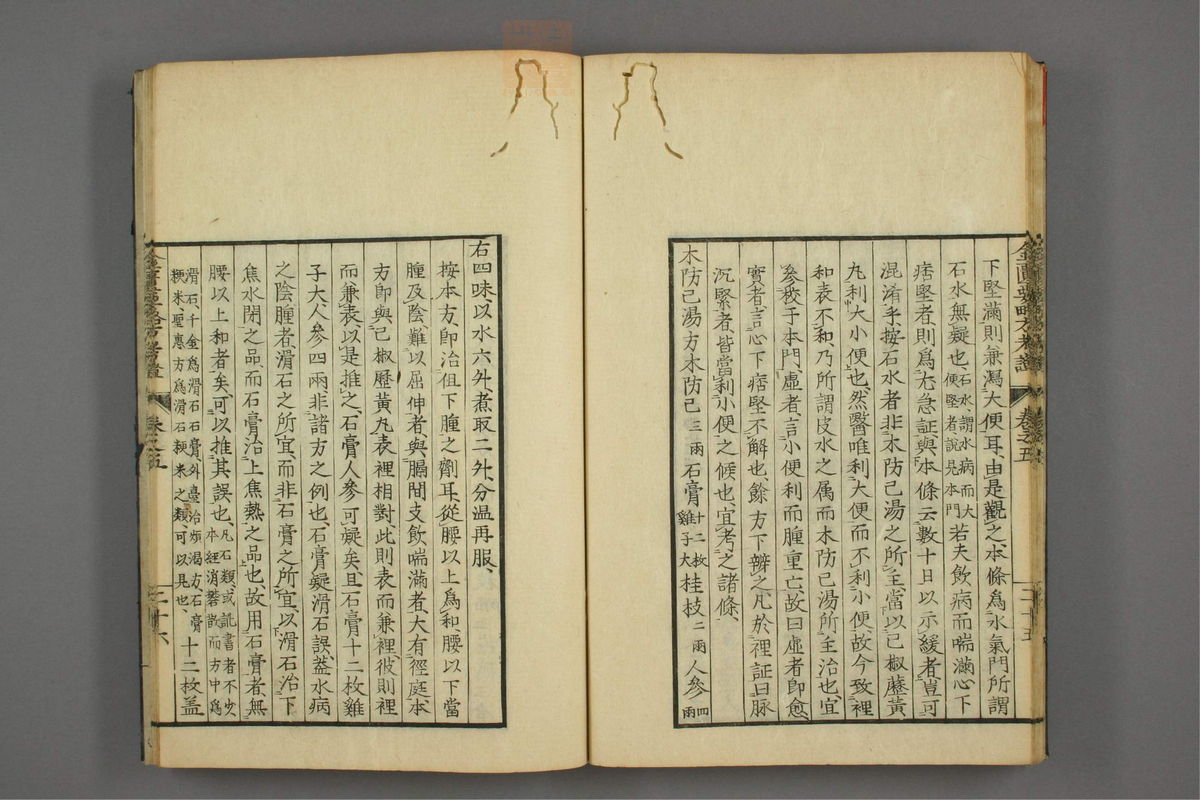 下堅滿則兼瀉大便耳、由是觀之、本條為水氣門所謂
石水無疑也、石水謂水病而大便堅者說見本門若夫飲病而喘滿心下
痞堅者、則為尤急証與本條云數十日以示緩者、豈可
混淆乎、按石水者非木防己湯之所主、當以己椒藶黃
丸利大小便也、然醫唯利大便而不利小便故今致裡
和表不和、乃所謂皮水之属而木防己湯所主治也、宜
參攷于本門、虛者、言小便利而腫重亡、故曰虛者即愈、
實者、言心下痞堅不解也、餘方下辨之、凡於裡証曰脉
沉緊者、皆當利小便之候也、宜考之諸條、
木防己湯方木防己三兩石膏十二枚雞子大桂枝二兩人參四兩
金匱要略方考證 卷之五 二十五
右四味以水六升、煮取二升、分温再服、
按本方、即治伹下腫之劑耳、從腰以上為和、腰以下當
腫及陰難以屈伸者、與膈間支飲喘滿者、大有徑庭、本
方即與己椒藶黃丸表裡相對、此則表而兼裡、彼則裡
而兼表、以是推之、石膏人參可疑矣、且石膏十二枚雞
子大、人參四兩、非諸方之例也、石膏疑滑石誤、蓋水病
之陰腫者、滑石之所宜、而非石膏之所宜、以滑石治下
焦水閉之品、而石膏治上焦熱之品也、故用石膏者、無
腰以上和者矣、可以推其誤也、凡石類、或訛書者不少本經消礬散而方中為
滑石、千金為滑石石膏、外臺治煩渴方、石膏粳米聖惠方為滑石粳米之類、可以見也、十二枚蓋
金匱要略方考證 卷之五 二十六